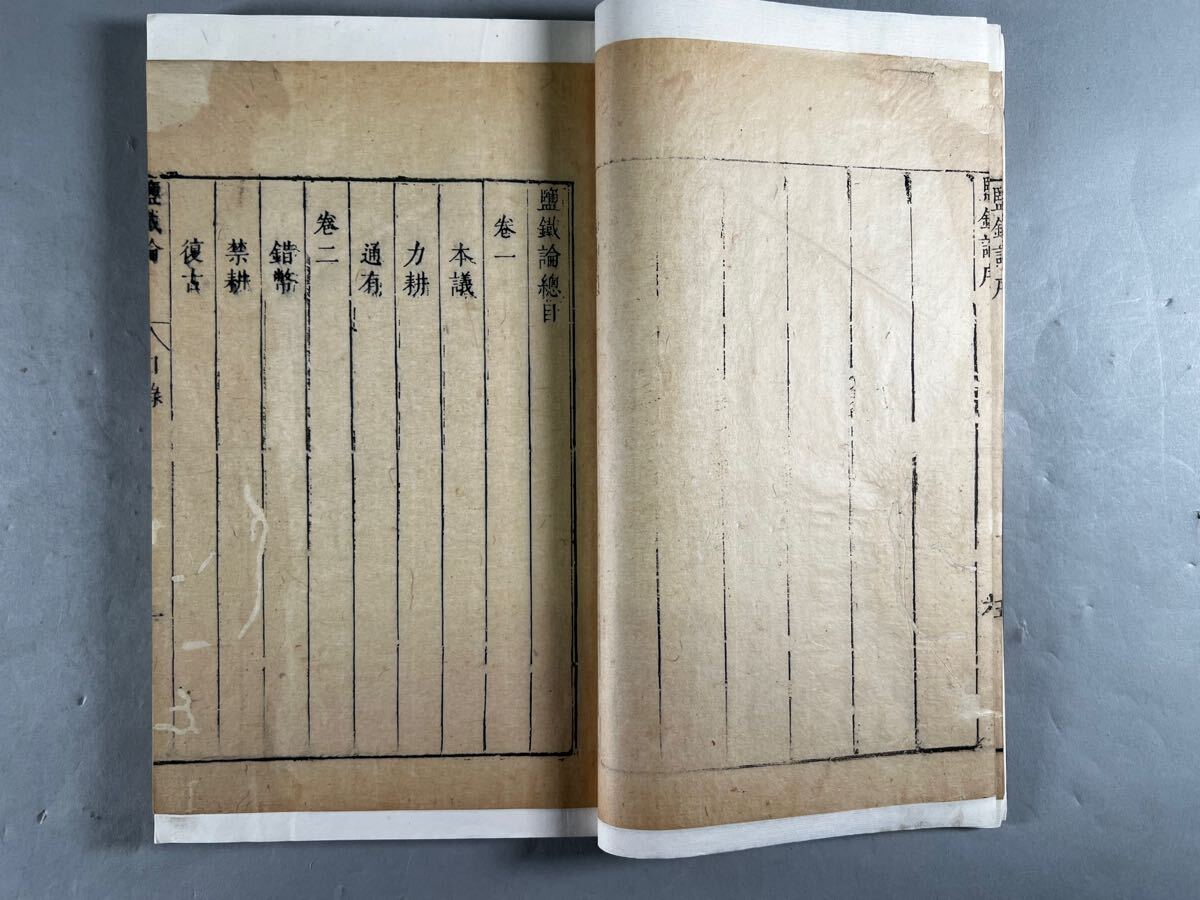 鹽鐵論序
鹽鐵論序
鹽鐵論總目
卷一
本議
力耕
通有
卷二
錯幣
禁耕
復古
鹽鐵論
目錄